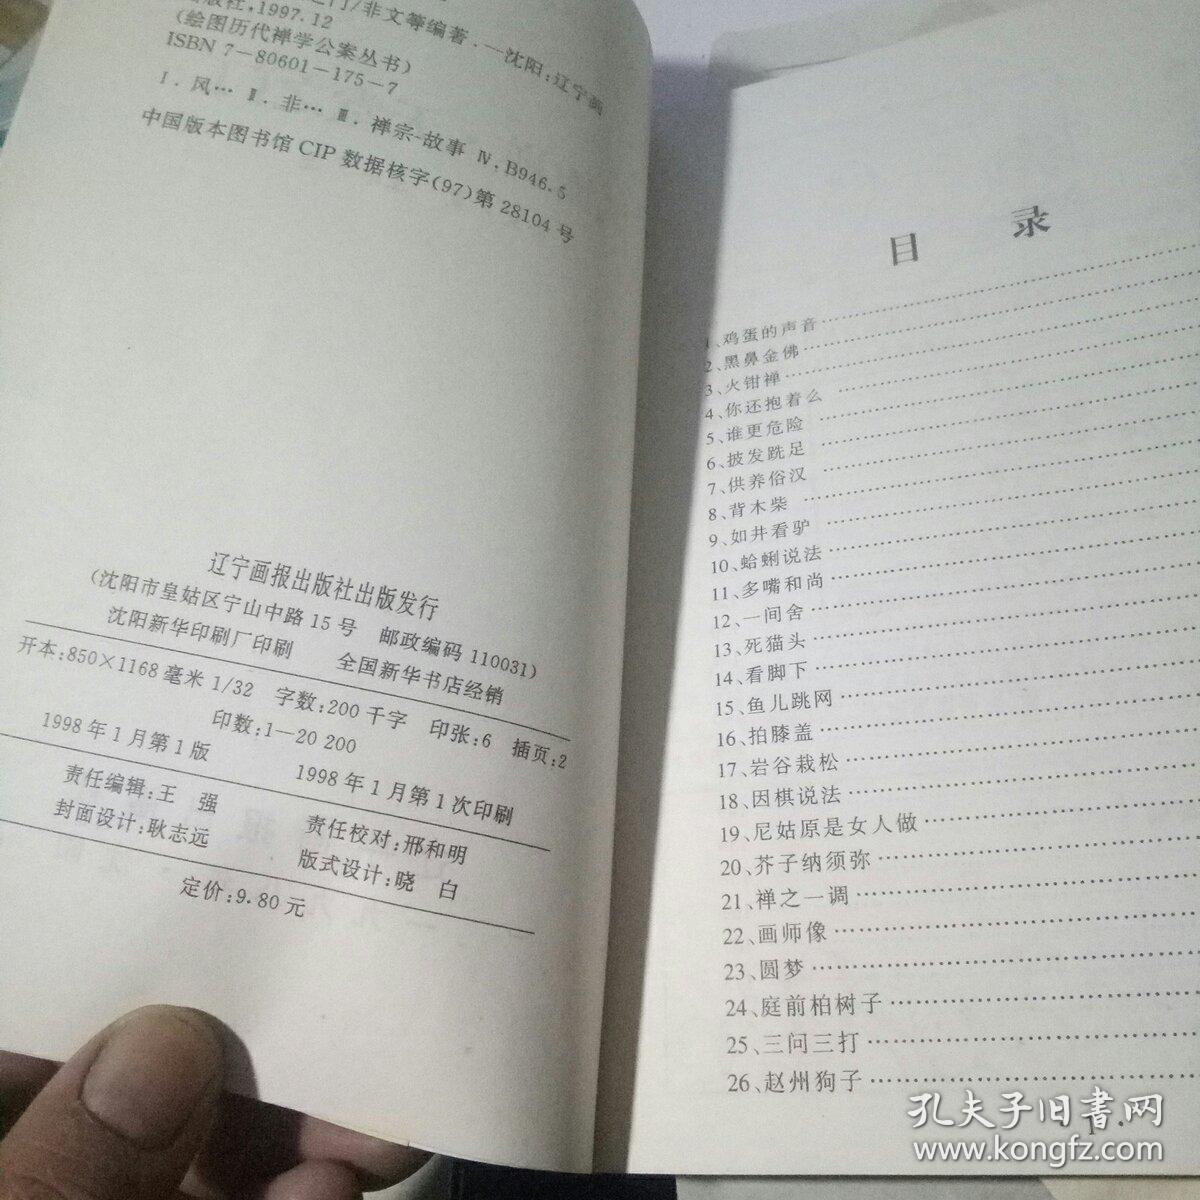 版社,1997.12
门/非文等编著.—沈阳:辽宁画
(绘图历代禅学公案丛书)
ISBN 7-80601-175-7
Ⅰ.风… Ⅱ.非… Ⅲ.禅宗-故事 Ⅳ.B946.5
中国版本图书馆CIP数据核字(97)第28104号
辽宁画报出版社出版发行
(沈阳市皇姑区宁山中路15号 邮政编码110031)
沈阳新华印刷厂印刷 全国新华书店经销
开本:850×1168毫米 1/32 字数:200千字 印张:6 插页:2
印数:1—20 200
1998年1月第1版 1998年1月第1次印刷
责任编辑:王 强 责任校对:邢和明
封面设计:耿志远 版式设计:晓 白
定价:9.80元
目 录
1、鸡蛋的声音
2、黑鼻金佛
3、火钳禅
4、你还抱着么
5、谁更危险
6、披发跣足
7、供养俗汉
8、背木柴
9、如井看驴
10、蛤蜊说法
11、多嘴和尚
12、一间舍
13、死猫头
14、看脚下
15、鱼儿跳网
16、拍膝盖
17、岩谷栽松
18、因棋说法
19、尼姑原是女人做
20、芥子纳须弥
21、禅之一调
22、画师像
23、圆梦
24、庭前柏树子
25、三问三打
26、赵州狗子
1
孔夫子旧书网
www.kongfz.com